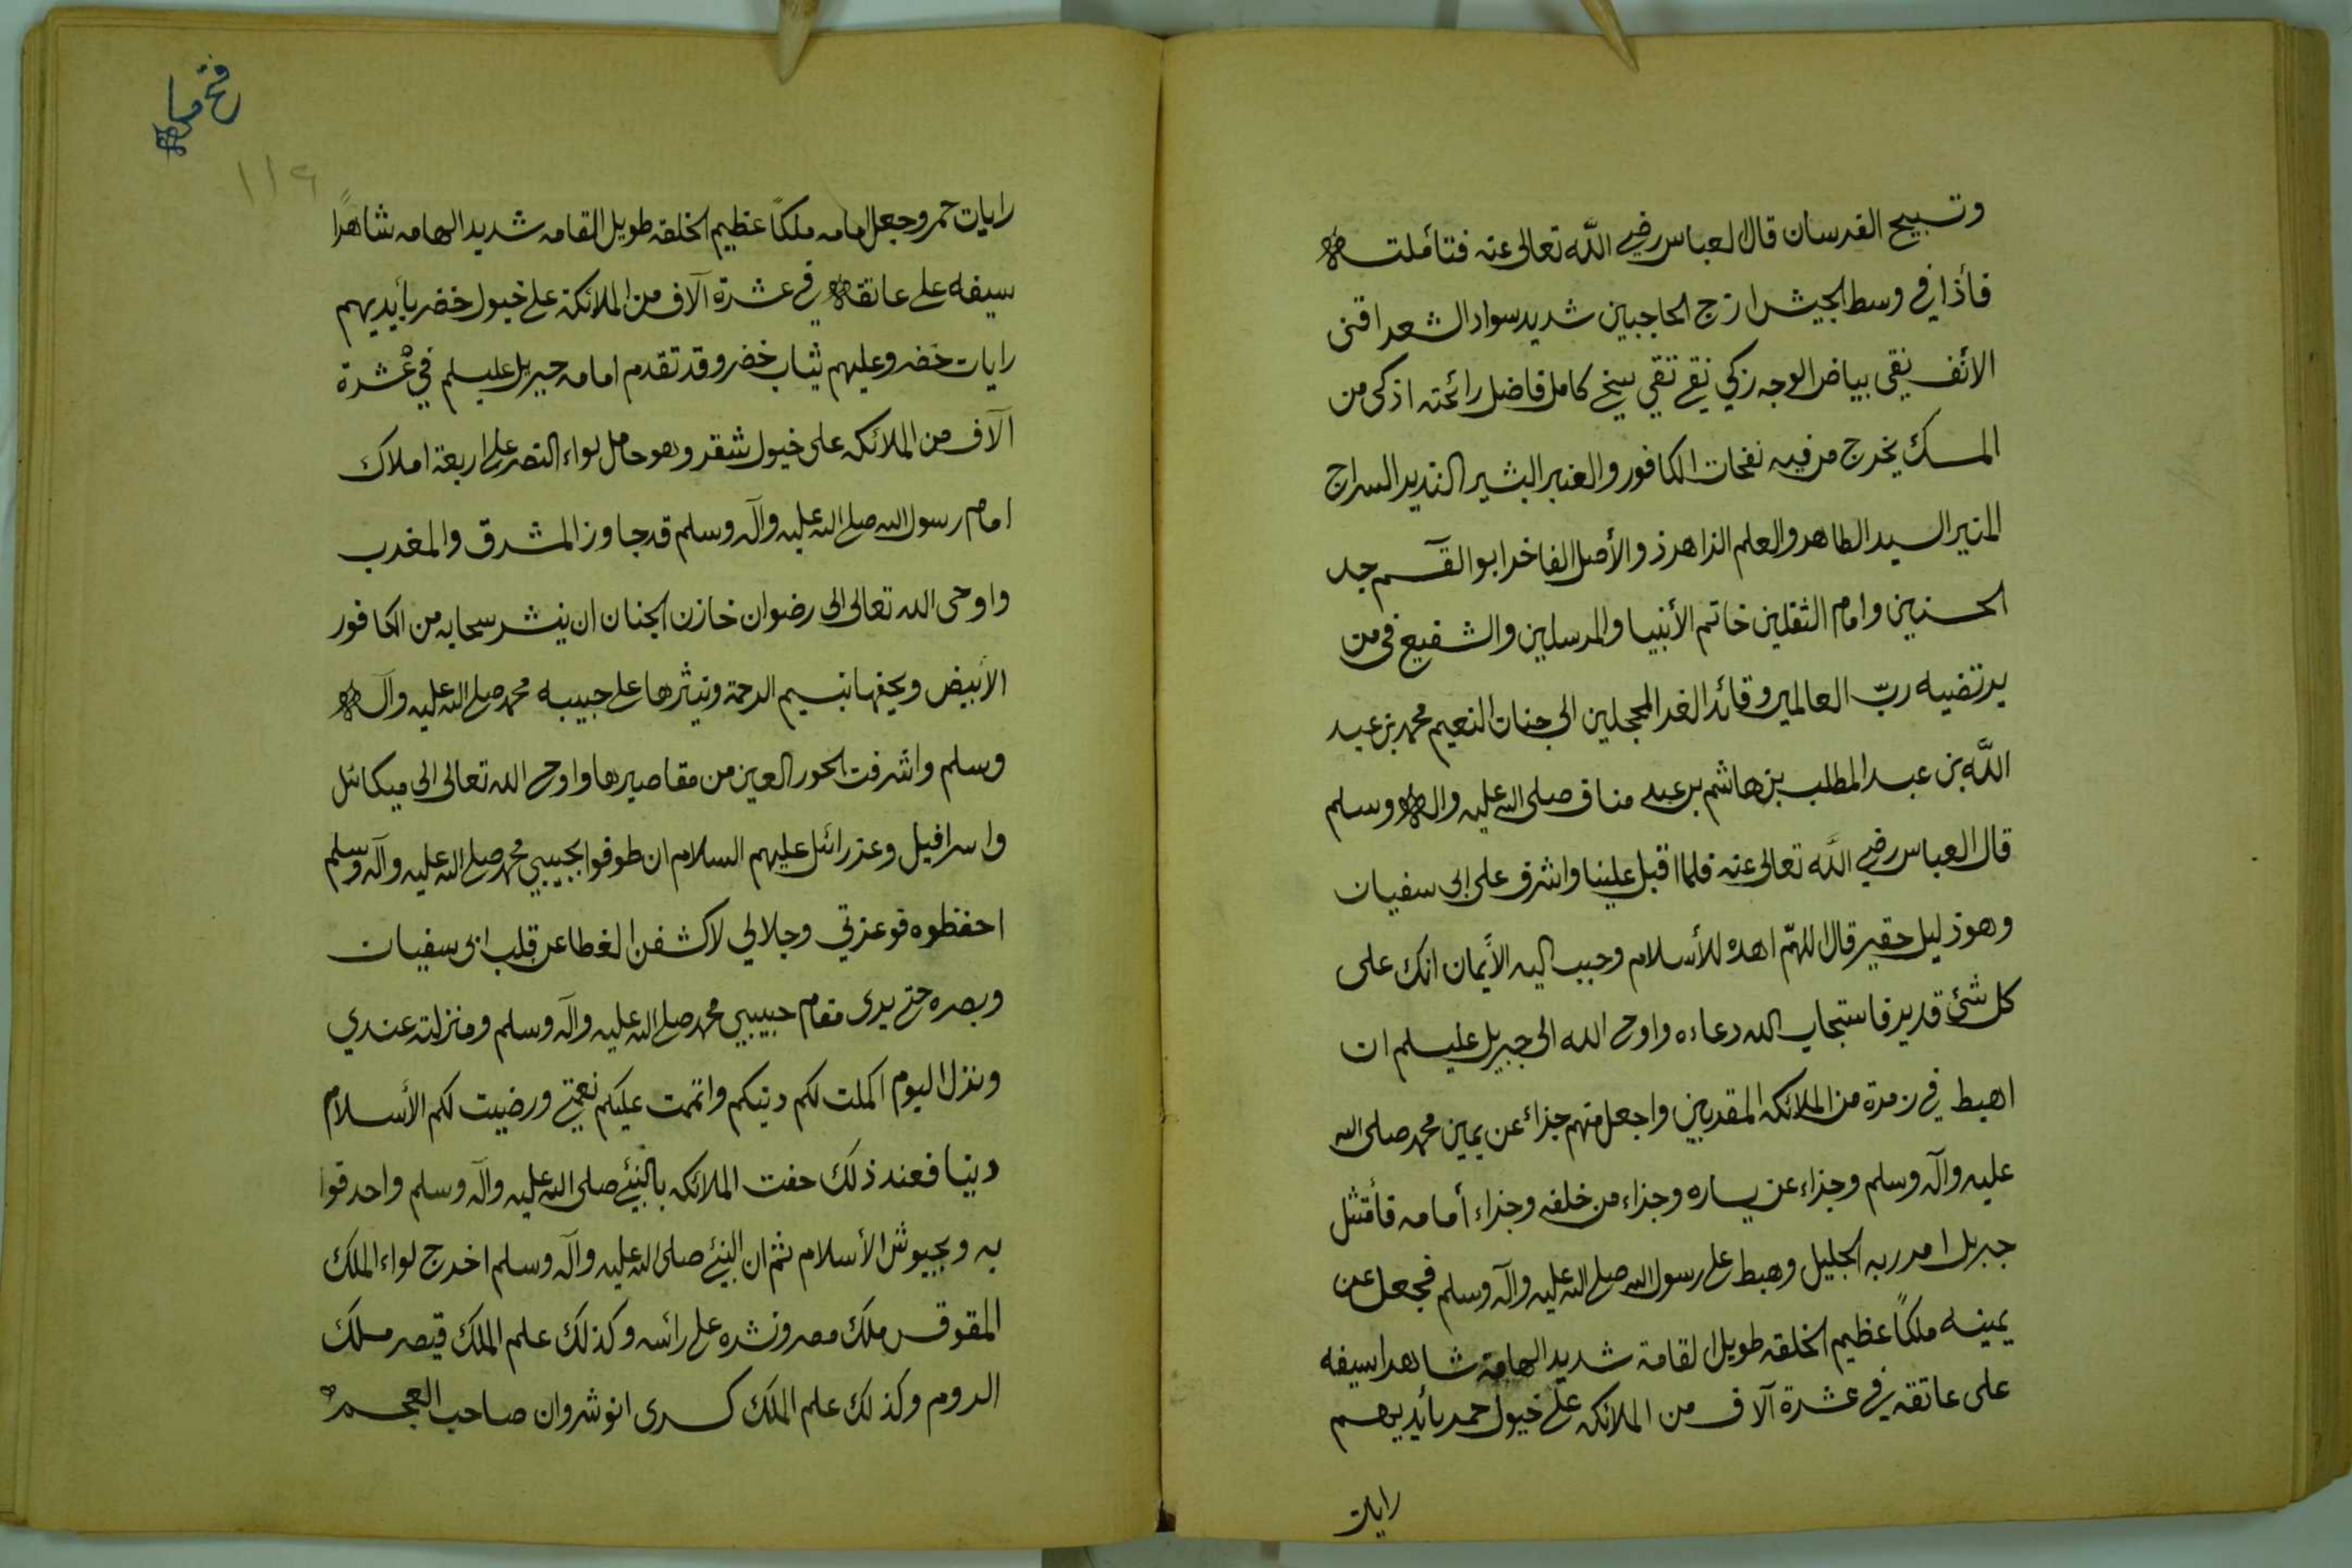 وتسبيح الفرسان قال العباس رضي اللّه تعالى عنه فتأملته
فأذا في وسط الجيش ازج الحاجبين شديد سواد الشعر اقنى
الأنف نقي بياض الوجه زكي نقي تقي سخي كامل فاضل رائحته اذكى من
المسك يخرج من فيه نفحات الكافور والعنبر البشير النذير السراج
المنير السيد الطاهر والعلم الزاهر ذو الأصل الفاخر ابو القسم جد
الحسنين وامام الثقلين خاتم الأنبيا والمرسلين والشفيع في من
يرتضيه ربّ العالمين وقائد الغر المحجلين الى جنات النعيم محمد بن عبد
اللّه بن عبد المطلب بن هاشم بن عبد مناف صلى الله عليه واله وسلم
قال العباس رضي اللّه تعالى عنه فلما اقبل علينا واشرف على ابى سفيان
وهو ذليل حقير قال اللهمّ اهده للأسلام وحبب اليه الأيمان انك على
كل شئ قدير فاستجاب الله دعاءه واوحى الله الى جبريل عليسلم ان
اهبط في زمرة من الملائكه المقربين واجعل منهم جزاء عن يمين محمد صلى الله
عليه وآله وسلم وجزاء عن يساره وجزاء من خلفه وجزاء أمامه فأمتثل
جبريل امر ربه الجليل وهبط على رسول الله صلى الله عليه وآله وسلم فجعل عن
يمينه ملكاً عظيم الخلقه طويل القامة شديد الهامة شاهرا سيفه
على عاتقه في عشرة آلاف من الملائكه على خيول حمر بأيديهم
رايات
فتح مكه
١١٩
رايات حمر وجعل امامه ملكاً عظيم الخلقه طويل القامه شديد الهامه شاهراً
سيفه على عاتقه في عشرة آلاف من الملائكة على خيول خضر بأيديهم
رايات خضر وعليهم ثياب خضر وقد تقدم امامه جبريل عليسلم في عشرة
آلاف من الملائكه على خيول شقر وهو حامل لواء النصر على اربعة املاك
امام رسول الله صلى الله عليه وآله وسلم قد جاوز المشرق والمغرب
واوحى الله تعالى الى رضوان خازن الجنان ان ينشر سحابه من الكافور
الأبيض ويحفها بنسيم الرحمة وينثرها على حبيبه محمد صلى الله عليه وآله
وسلم واشرفت الحور العين من مقاصيرها واوحى الله تعالى الى ميكائل
واسرافيل وعزرائل عليهم السلام ان طوفوا بحبيبي محمد صلى الله عليه وآله وسلم
احفظوه فوعزتي وجلالي لاكشفن الغطا عن قلب ابى سفيان
وبصره حتى يرى مقام حبيبي محمد صلى الله عليه وآله وسلم ومنزلته عندي
ونزل اليوم اكملت لكم دينكم واتممت عليكم نعمتي ورضيت لكم الأسلام
دينا فعند ذلك حفت الملائكه بالنبئ صلى الله عليه وآله وسلم واحدقوا
به وبجيوش الأسلام ثم ان النبئ صلى الله عليه وآله وسلم اخرج لواء الملك
المقوقس ملك مصر ونشره على رائسه وكذلك علم الملك قيصر ملك
الروم وكذلك علم الملك كسرى انوشروان صاحب العجم